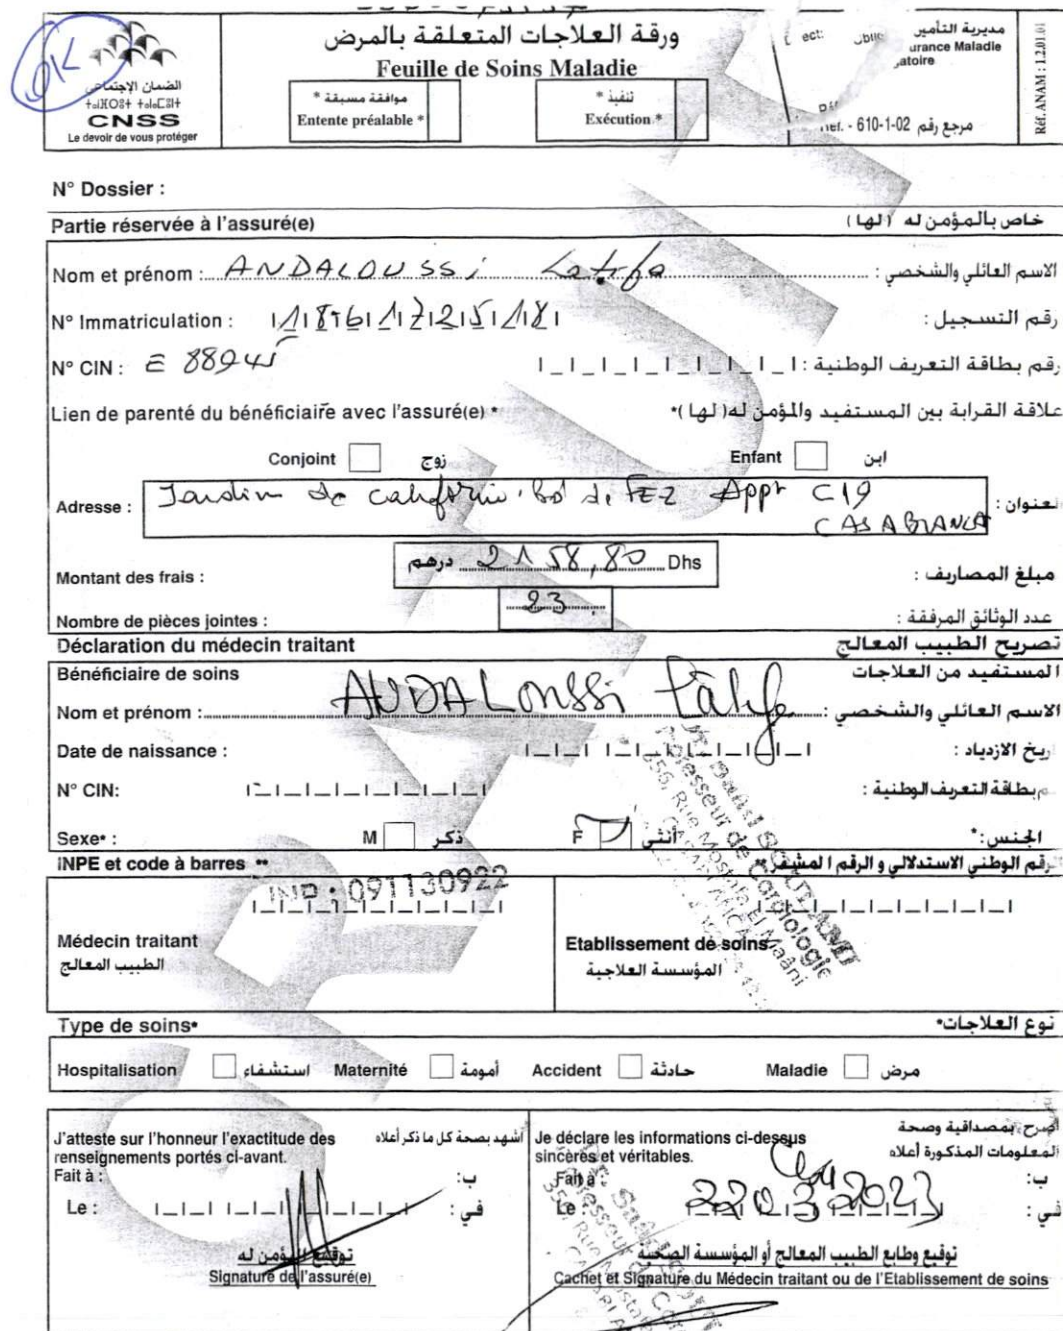 ورقة العلاجات المتعلقة بالمرض
Feuille de Soins Maladie
موافقة مسبقة *
Entente préalable *
تنفيذ *
Exécution *
مديرية التأمين
urance Maladie
atoire
610-1-02 - مرجع رقم
Réf. ANAM : 1.2.01.01
OK
الضمان الإجتماعي
CNSS
Le devoir de vous protéger
N° Dossier :
Partie réservée à l'assuré(e) خاص بالمؤمن له (لها)
Nom et prénom : ANDALOUSSi Latifa الاسم العائلي والشخصي :
N° Immatriculation : رقم التسجيل :
N° CIN : رقم بطاقة التعريف الوطنية :
Lien de parenté du bénéficiaire avec l'assuré(e) * علاقة القرابة بين المستفيد والمؤمن له (لها) *
Conjoint زوج Enfant ابن
Adresse : Jardin de californie Bd de FEZ Appt C19 CASABLANCA
Montant des frais : 2158,80 درهم Dhs مبلغ المصاريف :
Nombre de pièces jointes : 23 عدد الوثائق المرفقة :
Déclaration du médecin traitant تصريح الطبيب المعالج
Bénéficiaire de soins المستفيد من العلاجات
Nom et prénom : ANDALOUSSi Latifa الاسم العائلي والشخصي :
Date de naissance : الازدياد :
N° CIN: بطاقة التعريف الوطنية :
Sexe* : M ذكر F أنثى الجنس :*
INPE et code à barres ** الرقم الوطني الاستدلالي و الرقم المشفر **
INP : 091130922
Médecin traitant
الطبيب المعالج
Etablissement de soins
المؤسسة العلاجية
Professeur de Cardiologie
Rue Mostafa El Maâni
Type de soins* نوع العلاجات*
Hospitalisation استشفاء Maternité أمومة Accident حادثة Maladie مرض
J'atteste sur l'honneur l'exactitude des أشهد بصحة كل ما ذكر أعلاه
renseignements portés ci-avant.
Fait à : ب:
Le : في :
توقيع المؤمن له
Signature de l'assuré(e)
Je déclare les informations ci-dessus أصرح بمصداقية وصحة
sincères et véritables. المعلومات المذكورة أعلاه
Fait à ب:
Le : 22 03 2023 في :
توقيع وطابع الطبيب المعالج أو المؤسسة الصحية
Cachet et Signature du Médecin traitant ou de l'Etablissement de soins